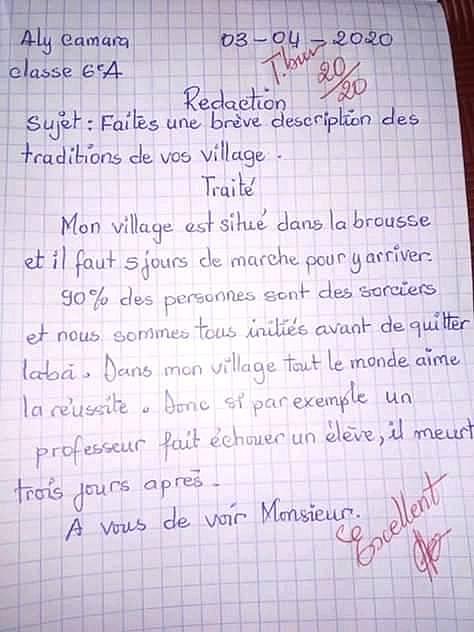 Aly Camara 03-04-2020
classe 6eA T.bien
20/20
Redaction
Sujet : Faites une brève description des
traditions de vos village.
Traité
Mon village est situé dans la brousse
et il faut 5 jours de marche pour y arriver.
90% des personnes sont des sorciers
et nous sommes tous initiés avant de quitter
labà. Dans mon village tout le monde aime
la réussite. Donc si par exemple un
professeur fait échouer un élève, il meurt
trois jours après.
A vous de voir Monsieur.
Excellent